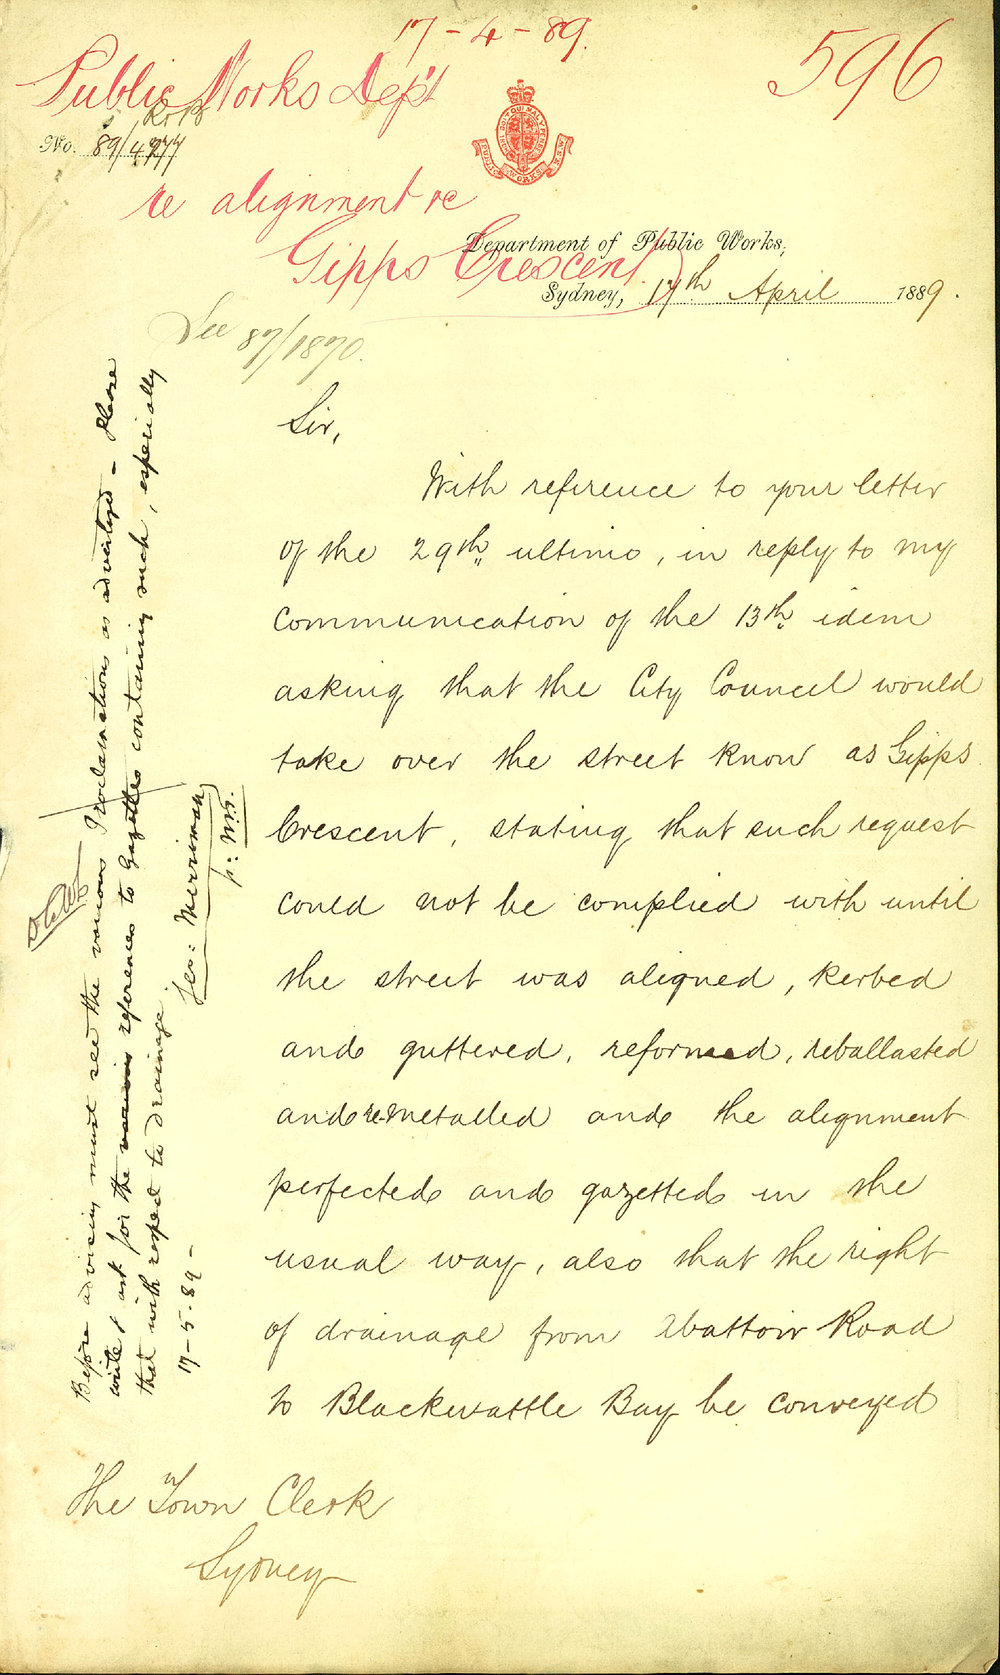 17-4-89.
596
Public Works Dep't
R&B
No. 89/4277
re alignment re
Gipps Crescent
PUBLIC WORKS N.S.W.
Department of Public Works,
Sydney, 17th April 1889.
See 87/1870.
Sir,
With reference to your letter
of the 29th ultimo, in reply to my
communication of the 13th idem
asking that the City Council would
take over the street know as Gipps
Crescent, stating that such request
could not be complied with until
the street was aligned, kerbed
and guttered, reformed, reballasted
and re-metalled and the alignment
perfected and gazetted in the
usual way, also that the right
of drainage from Abattoir Road
to Blackwattle Bay be conveyed
The Town Clerk
Sydney
Before advising must see the various Proclamations as advertized - Please
write & ask for the various references to Gazettes containing such, especially
that with respect to drainage
Geo: Merriman
p: M.S.
17-5-89-